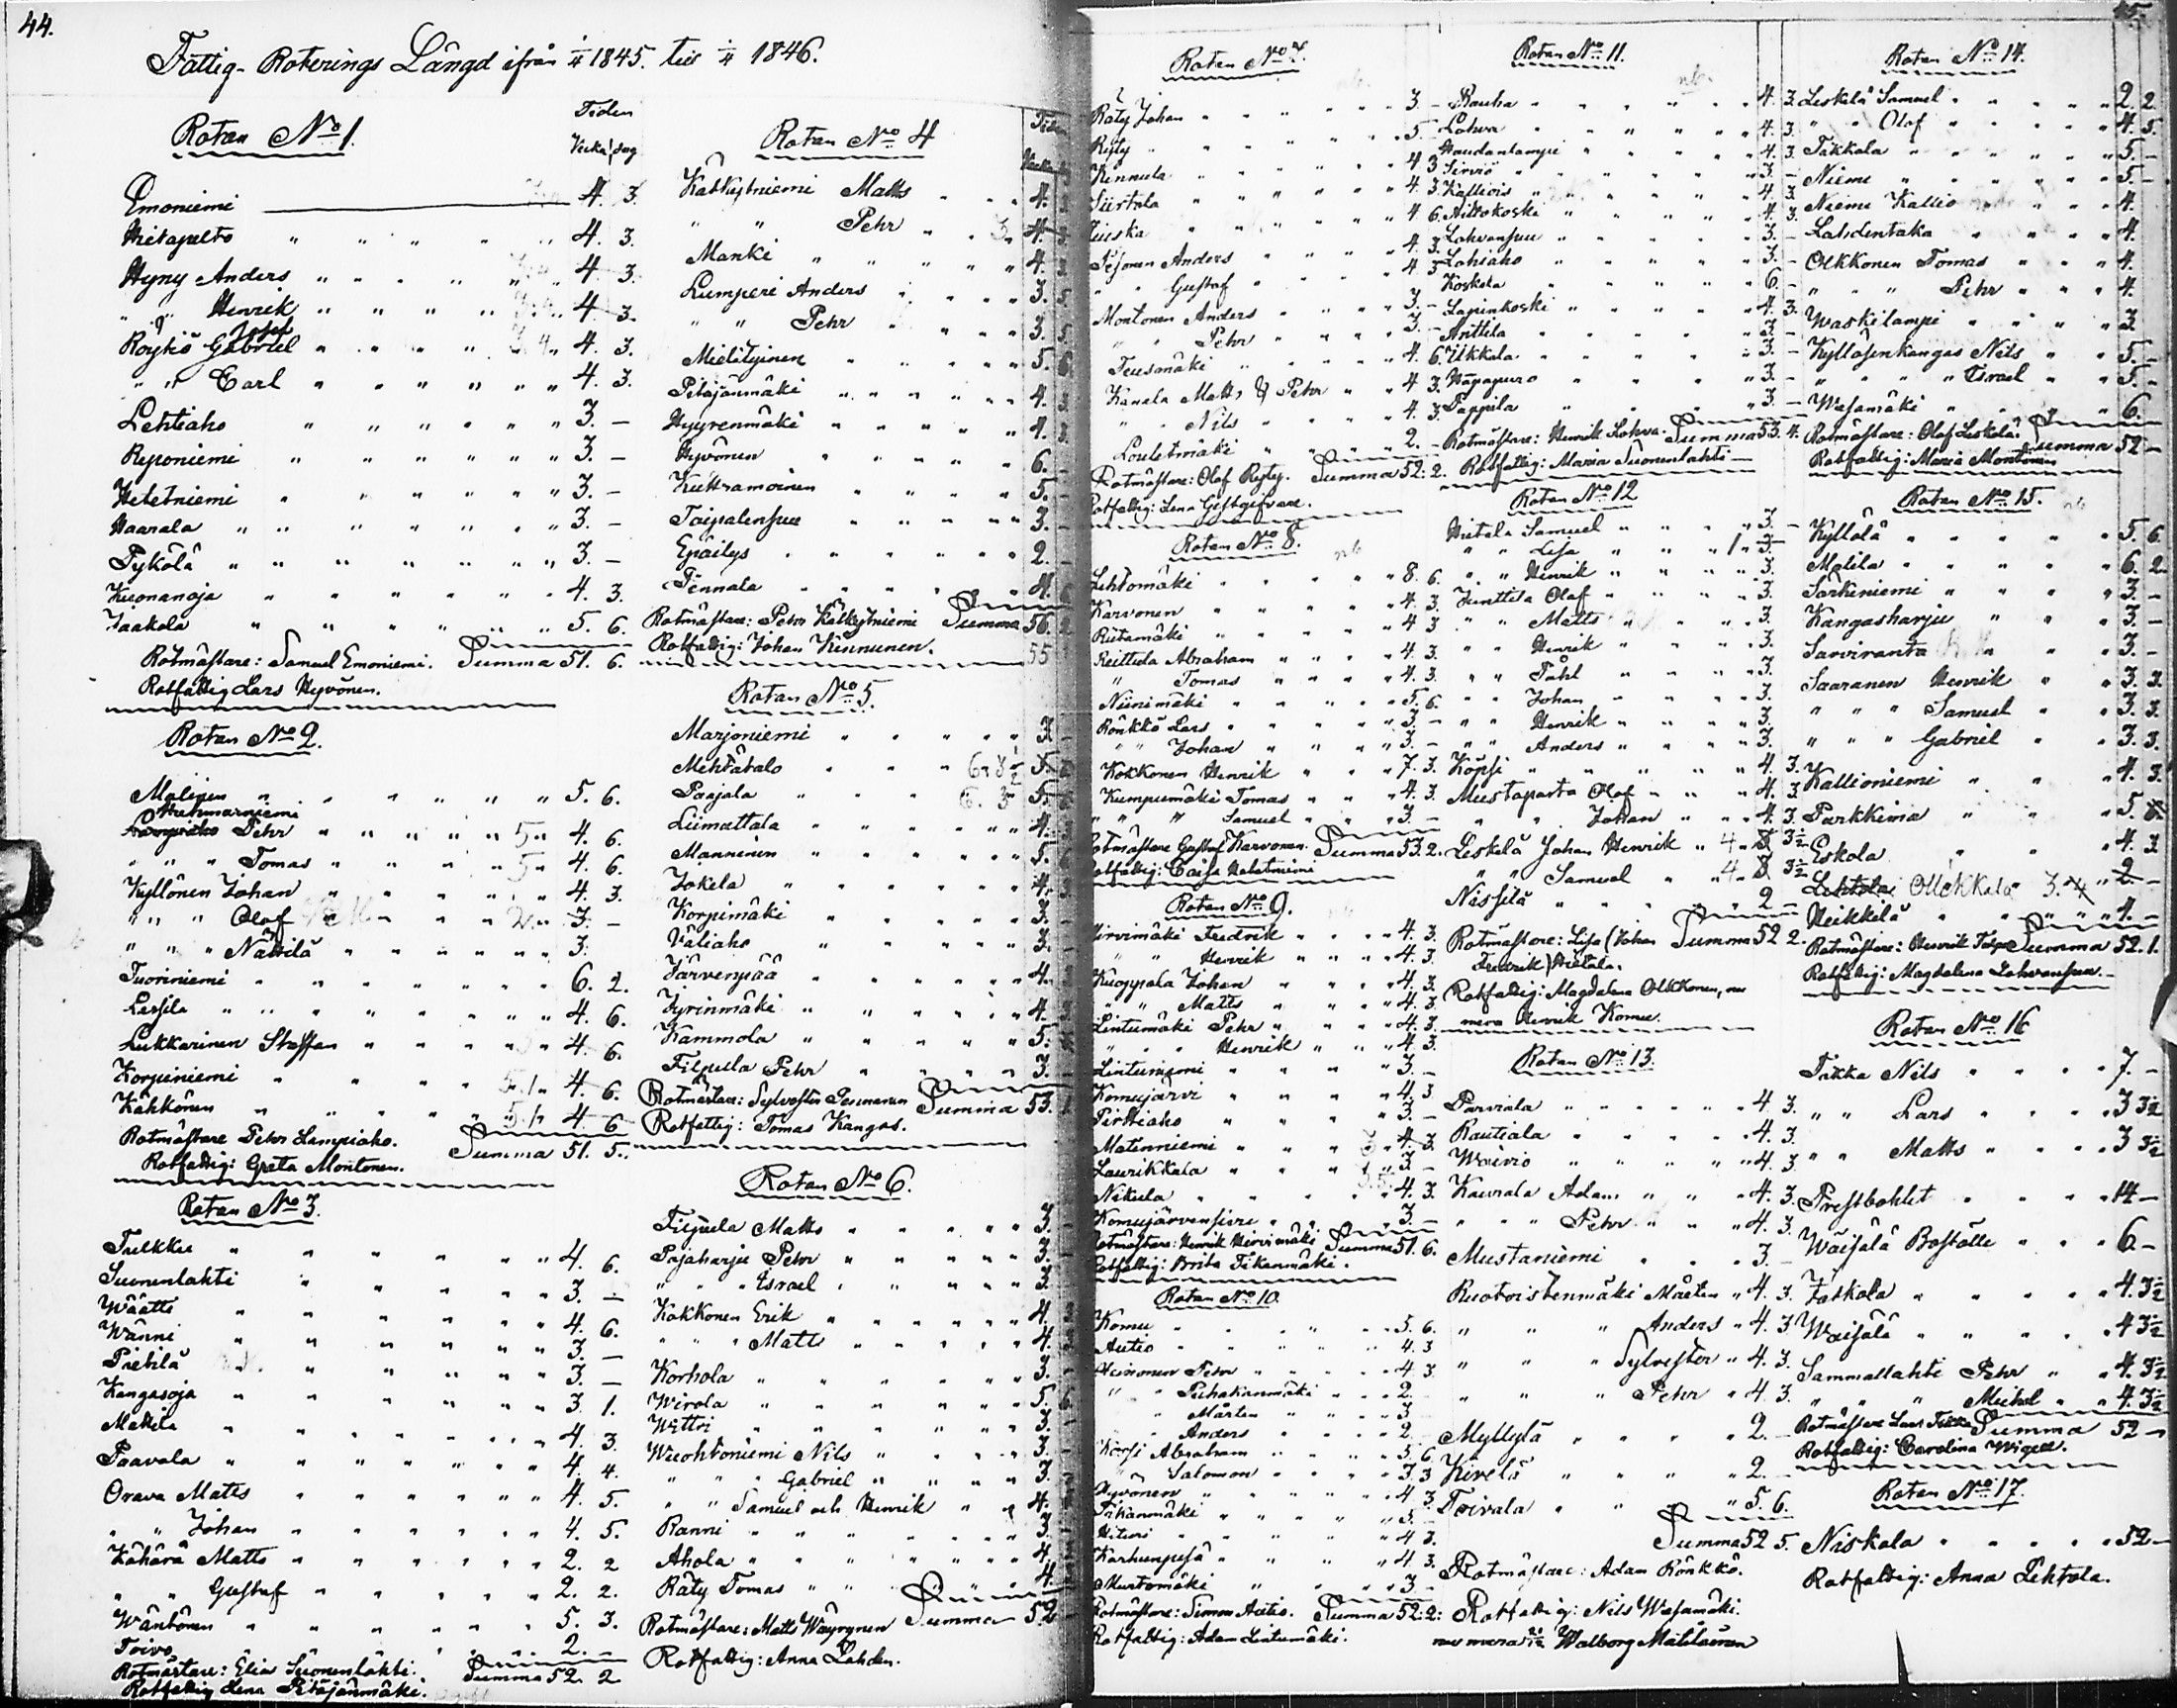 44.
Fattig-Roterings Längd ifrån 1/11 1845. till 1/11 1846.
Rotan No 1.
Tiden
Vecka dag
Emoniemi 4. 3.
Hietapelto " " " " " 4. 3.
Hyny Anders " " " " " 4. 3.
" " Henrik " " " " " 4. 3.
Josef
Röykö Gabriel " " " " 4. 3.
" " Carl " " " " " " 4. 3.
Lehtiaho " " " " " " 3. –
Reponiemi " " " " " " 3. –
Hetetniemi " " " " " " 3. –
Haarala " " " " " " 3. –
Pykölä " " " " " " 3. –
Kuonanoja " " " " " " 4. 3.
Jaakola " " " " " " 5. 6.
Rotmästare: Samuel Emoniemi. Summa 51. 6.
Rotfattig Lars Hyvönen.
Rotan No 2.
Malinen " " " " " " 5. 6.
Pehr " " " " " 5 " 4. 6.
" " " Tomas " " " " 5 " 4. 6.
Kyllönen Johan " " " " " 4. 3.
" " " Olof " " 2. " 3. –
" " " Nattila " " " " " 3.
Tuoriniemi " " " " " " 6. 2.
Lassila " " " " " " 4. 6.
Lukkarinen Staffan " " " " " 4. 6.
Korpiniemi " " " " 5. 1. " 4. 6.
Käkkönen " " " " 5. 1. 4. 6
Rotmästare Pehr Lampiaho.
Summa 51. 5.
Rotfattig: Greta Montonen.
Rotan No 3.
Tulkku " " " " " " 4. 6.
Suonenlahti " " " " " 3. –
Wäätti " " " " " " 4. 6.
Wänni " " " " " " 3. –
Pietilä " " " " " 3. –
Kangasoja " " " " " " 3. 1.
Mattila " " " " " " 4. 3.
Paavala " " " " " " 4. 4.
Orava Matts " " " " " " 4. 5.
" " Johan " " " " " " 4. 5.
Kähärä Matts " " " " " " 2. 2
" " Gustaf " " " " " " 2. 2.
Wäntönen " " " " " " 5. 3.
Toivo 2. –
Rotmästare: Elia Suonenlahti. Summa 52. 2
Rotfattig Lena Petäjänmäki.
Rotan No 4
Tiden
Vecka
Kätkytniemi Matts " " 4.
" " Pehr " " 3. 4.
Manki " " " " " 4.
Lumperi Anders " " " 3. 5
" " Pehr " " " 3. 5.
Mielityinen " " " " " 5. 6
Petäjänmäki " " " " " 4. 3
Hyyrenmäki " " " " " 4. 3.
Hyvönen " " " " " 6.
Kuttramoinen " " " " 5.
Taipalensuu " " " " " 3.
Epäilys " " " " " 2.
Tennala " " " " " 4. 6
Rotmästare: Pehr Kätkytniemi Summa 56. 2
Rotfattig: Johan Kinnunen. 55
Rotan No 5.
Marjoniemi " " " " " 3
Mehtätalo " " " 6. 3 1/2 5.
Paajala " " " 6. 3 5.
Liimattala " " " " " 4.
Mannenen " " " " " 5. 6
Jokela " " " " " " 4.
Korpimäki " " " " " 3.
Väliaho " " " " " 3.
Järvenpää " " " " " 4.
Jyrinmäki " " " " " 4.
Kammola " " " " " 5.
Filpulla Pehr " " " " 3.
Rotmästare: Sylvester Germanen Summa 53.
Rotfattig: Tomas Kangas.
Rotan No 6.
Filpula Matts " " " " " 3.
Pajaharju Pehr " " " " " 3.
" " " Israel " " " " 3.
Kokkonen Erik " " " " " 4.
" " " Matts " " " " " 4.
Korhola " " " " " " 3.
Wirola " " " " " " 5. 6
Wittri " " " " " " 3.
Wuohtoniemi Nils " " " " 3.
" " " Gabriel " " " " 3.
" " Samuel och Henrik " " 4.
Ranni " " " " " " 3.
Ahola " " " " " " 4.
Räty Tomas " " " " 4.
Rotmästare: Matts Wäyrynen Summa 52
Rotfattig: Anna Lahden.
Rotan No 7.
Räty Johan " " " " " 3. –
Ryty " " " " " 5. –
Kennula " " " " " 4 3
Siirtola " " " " " 4. 3.
Juska " " " " " 4. 6.
Pesonen Anders " " " " 4. 3.
" " Gustaf " " " " 4 3
Montonen Anders " " " " 3. –
" " Pehr " " " " 3. –
Teusmäki " " " " 4. 6.
Känälä Matts & Pehr " " 4 3.
" " Nils " " " " 4. 3.
Louletmäki " " " " 2. –
Rotmästare: Olof Rytty. Summa 52. 2.
Rotfattig: Lena Gestgifvare.
Rotan No 8. nb
Lehtomäki " " " " " 8. 6.
Karvonen " " " " " 4. 3.
Rietamäki " " " " " 4 3
Reittula Abraham " " " " 4. 3.
" Tomas " " " " 4. 3.
Niinimäki " " " " " 5. 6.
Rönkkö Lars " " " " " 3. –
" " Johan " " " " " 3. –
Kokkonen Henrik " " " " 7. 3.
Kumpumäki Tomas " " " " 4. 3.
" " " Samuel " " " " 3. –
Rotmästare Gustaf Karvonen. Summa 53. 2.
Rotfattig: Caisa Hetetniemi
Rotan No 9.
Hirvimäki Fredrik " " " 4. 3.
" " Henrik " " " 4. 3.
Kuoppala Johan " " " 4. 3.
" " Matts " " " 4. 3.
Lintumäki Pehr " " " 4. 3.
" " " Henrik " " " 4. 3.
Lintuniemi " " " " 3. –
Komujärvi " " " " 4. 3
Pirttiaho " " " " 3. –
Matinniemi " " " 3 4. 3.
Laurikkala " " " " 3 –
Nikula " " " " 3. 5. 4. 3.
Komujärvensivu " " " 3. –
Rotmästare: Henrik Hirvimäki Summa 51. 6.
Rotfattig: Brita Tikanmäki.
Rotan No 10.
Komu " " " " 5. 6.
Autio " " " " 4. 3
Heinonen Pehr " " " " 4 3.
" " Puhakanmäki " " " 2.
" Mårten " " " 3
" Anders " " " 2
Körsi Abraham " " " 5 6
" Salomon " " " 3 3
Hyvönen " " " " 4 3
Tikanmäki " " " " 5 –
Hituri " " " " 4 3.
Karhunpesä " " " " 4 3.
Murtomäki " " " " 3 –
Rotmästare: Simon Autio. Summa 52. 2.
Rotfattig: Adam Lintumäki.
Rotan No 11.
nb.
Rauha " " " " " 4. 3.
Lohva " " " " " 4. 3.
Haudanlampi " " " " 4. 3.
Sirviö " " " " " 3 –
Kallivis " " " " 4. 3
Aittokoski " " " " 4. 3.
Lohvansuu " " " " 3. –
Lohiaho " " " " 3. –
Koskela " " " " 6. –
Lapinkoski " " " " 4. 3.
Anttila " " " " 3 –
Ukkola " " " " 3. –
Hapapuro " " " " 3. –
Pappila " " " " 3. –
Rotmästare: Henrik Lohva. Summa 53. 4.
Rotfattig: Maria Suonenlahti
Rotan No 12
Hietala Samuel " " " " 3. –
" " Lisa " " " 1 " 3.
" " Henrik " " " " 3.
Junttila Olof " " " " 3.
" " Matts " " " 3.
" " Henrik " " " 3.
" " Påhl " " " 3.
" " Johan " " " 3.
" " Henrik " " " 3.
" " Anders " " " 3.
Köpsi " " " " " 4. 3.
Mustaparta Olof " " " 4. 3.
" " Johan " " 4. 3
Leskelä Johan Henrik " 4 " 3 3 1/2
" " Samuel " " 4 3 3 1/2
Nissilä " " " " 2 –
Rotmästare: Lisa (Johan Summa 52 2.
Fredrik) Hietala.
Rotfattig: Magdalena Olkkonen, nu
mera Henrik Komu.
Rotan No 13.
Parviala " " " " " 4 3.
Rautiala " " " " " 4. 3.
Waivio " " " " " 4. 3
Kaurala Adam " " " 4. 3.
" " " Pehr " " " 4. 3.
Mustaniemi " " " 3. –
Ruotoistenmäki Mårten " 4. 3.
" " " Anders " 4. 3
" " " Sylvester " 4. 3.
" " " Pehr " 4 3.
Myllylä " " " " 2. –
Kivelä " " " " 2. –
Toivala " " " " 5. 6.
Summa 52 5.
Rotmästare: Adam Rönkkö.
Rotfattig: Nils Wasamäki.
nu mera Walborg Matilainen
Rotan No 14.
Leskelä Samuel " " " " 2. 2
" " Olof " " " " 4. 5.
Takkala " " " " " 5. –
Niemi " " " " " 5. –
Niemi Kallio " " " 4.
Lahdentaka " " " " 4.
Olkkonen Tomas " " " 4.
" " " Pehr " " " 4.
Waskilampi " " " " 3
Kyllösenkangas Nils " " 5. –
" " " " Israel " " 5. –
Wasamäki " " " " 6.
Rotmästare: Olof Leskelä. Summa 52 –
Rotfattig: Maria Montonen
Rotan No 15. nb
Kyllölä " " " " " 5. 6.
Matila " " " " " 6. 2.
Särkiniemi " " " " 3. –
Kangasharju " " " 3. –
Sarviranta " " 3. –
Saaranen Henrik " " 3. 3.
" " " Samuel " " 3. 3.
" " " Gabriel " " 3. 3.
Kallioniemi " " " 4. 3.
Parkkima " " " 5. 6.
Eskola " " " 4. 3
Lehtola Ollokkala 3. 4 2. –
Heikkilä " " " " 4. –
Rotmästare: Henrik Summa 52. 1.
Rotfattig: Magdalena Lohvansuu.
Rotan No 16
Takka Nils " " " " 7. –
" " Lars " " " " 3 3 1/2
" " Matts " " " " 3 3 1/2
Prestbohlet " " " " 14 –
Wäisälä Boställe " " " 6 –
Jaskola " " " " " 4. 3 1/2
Waisälä " " " " " 4 3 1/2
Sammallahti Pehr " " 4. 3 1/2
" " " Michel " " 4. 3 1/2
Rotmästare Lars Takka Summa 52 –
Rotfattig: Carolina Wigell.
Rotan No 17.
Niskala " " " " 52 –
Rotfattig: Anna Lehtola.